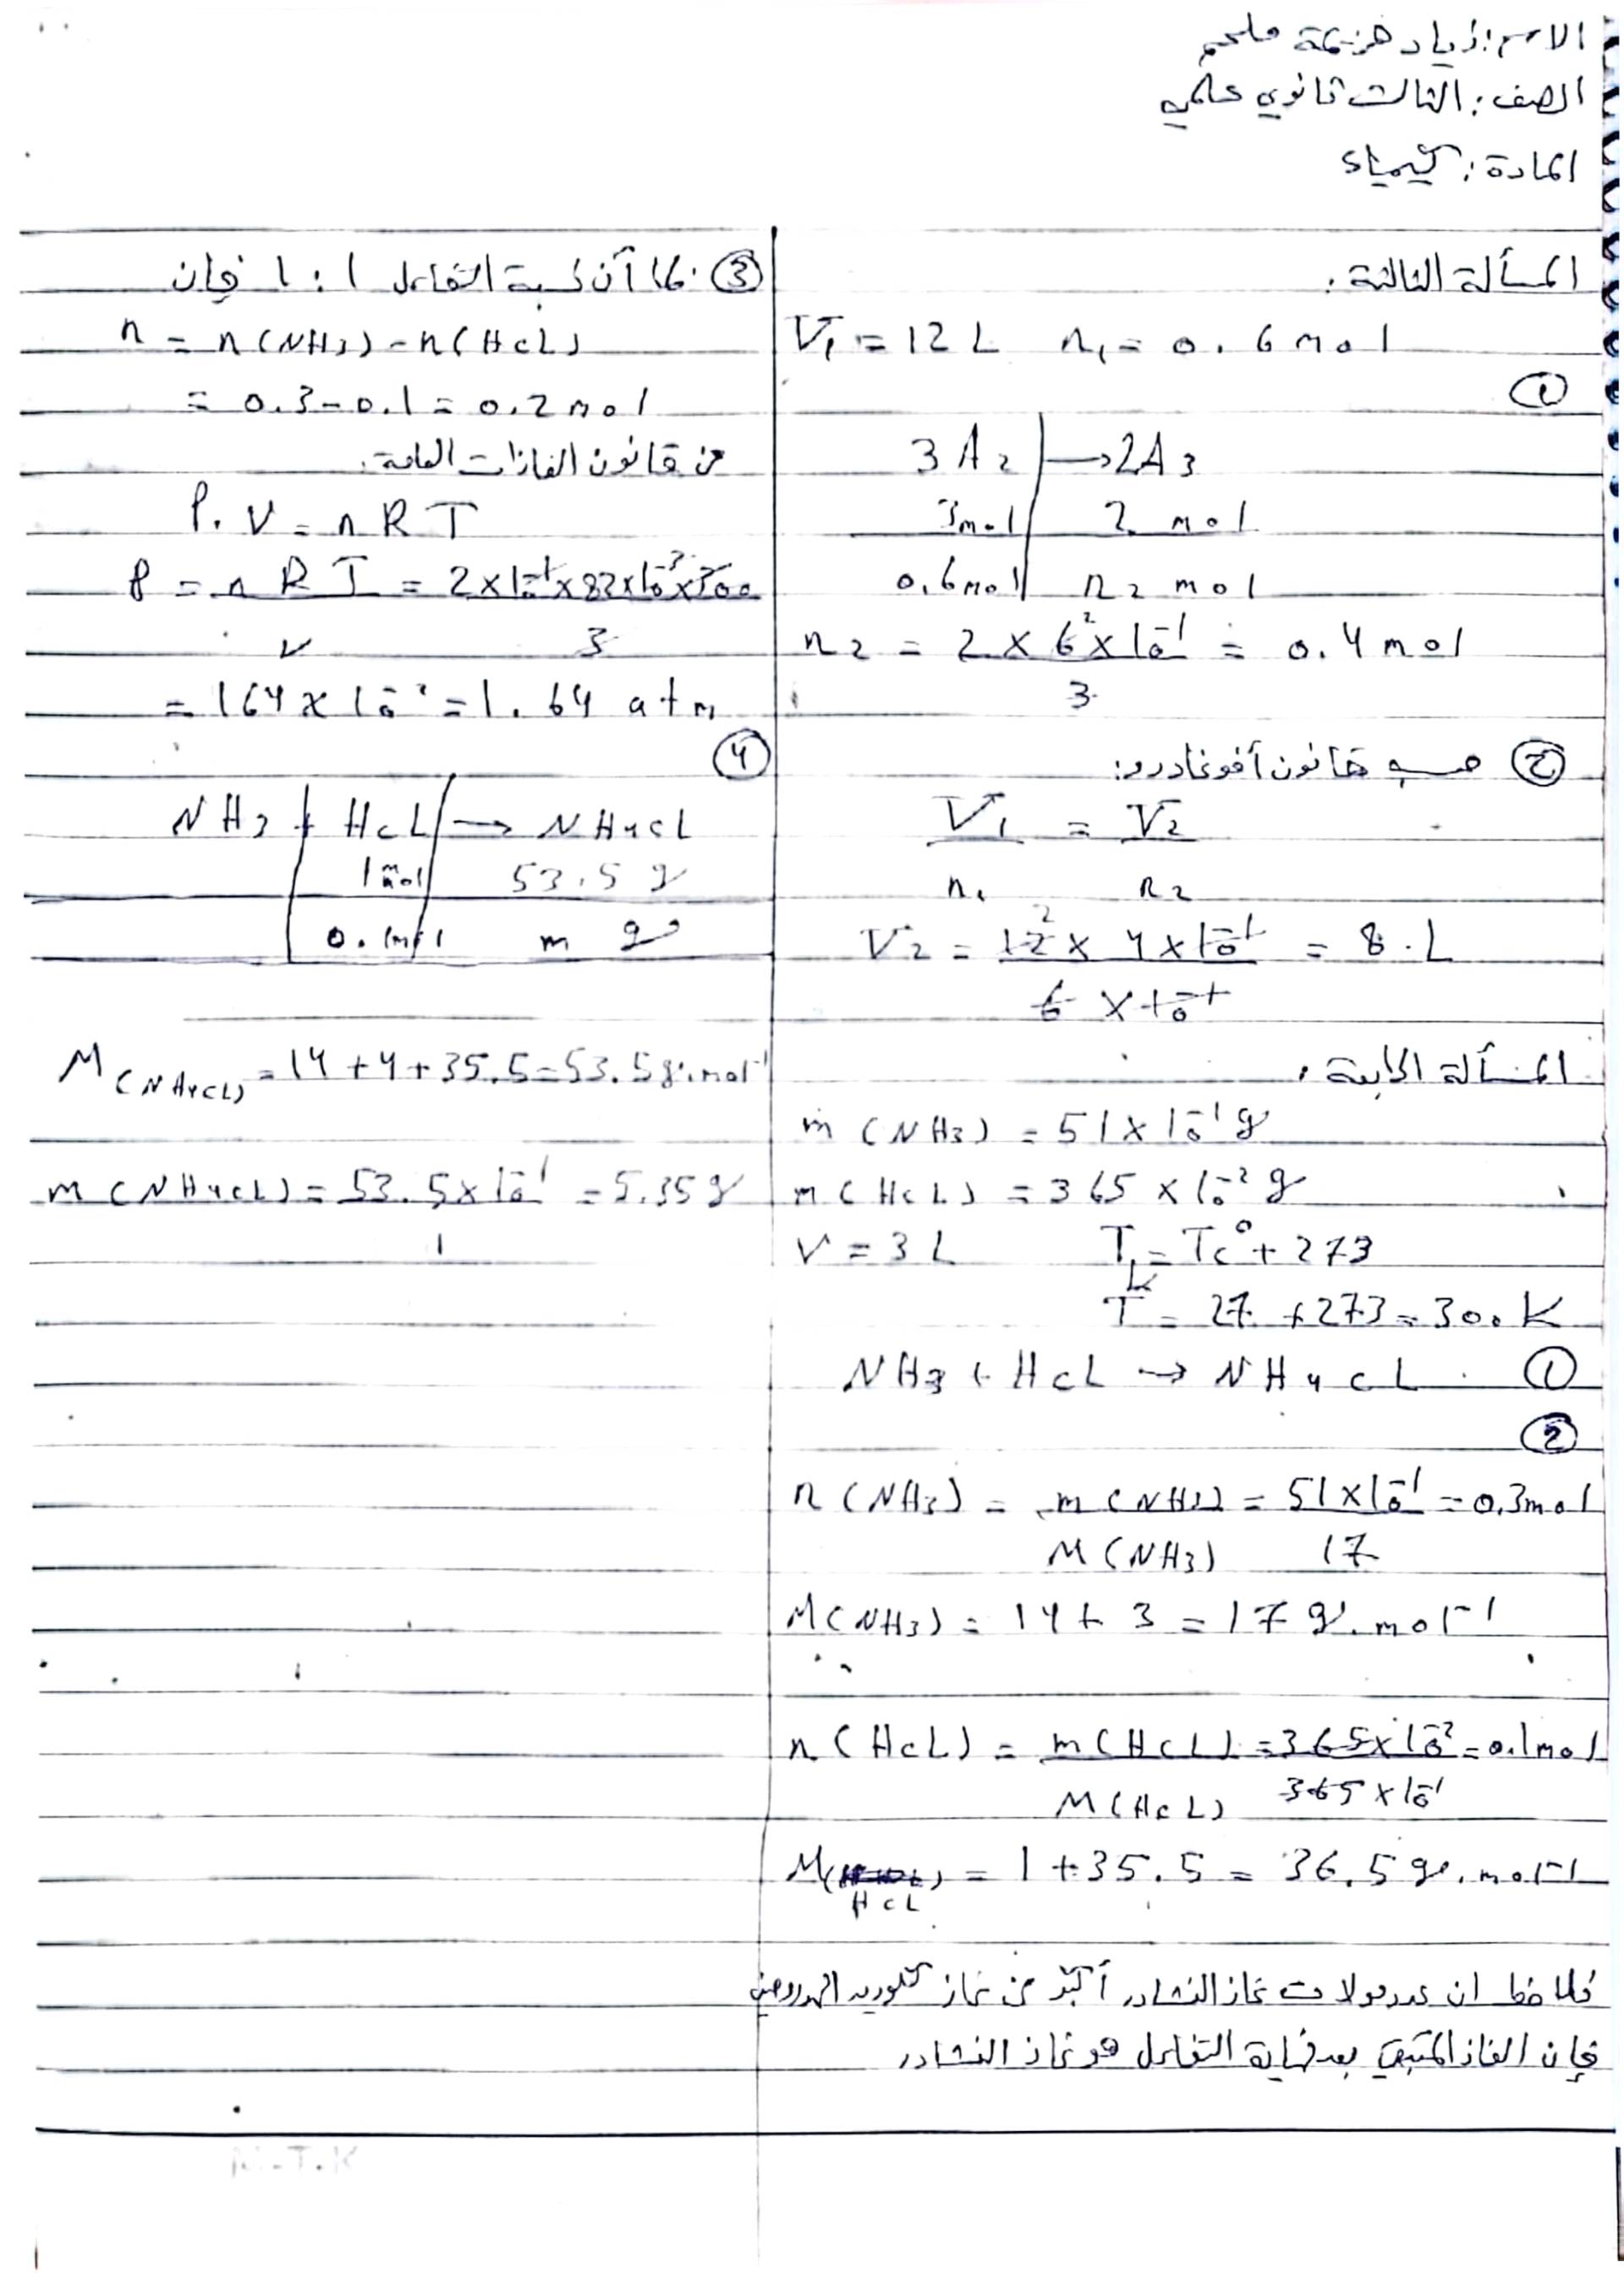 الاسم: زياد هزيمة ملحم
الصف: الثالث ثانوي علمي
المادة: كيمياء
المسألة الثالثة:
V₁ = 12 L n₁ = 0.6 mol
①
3A₂ → 2A₃
3mol 2 mol
0.6mol n₂ mol
n₂ = 2 × 6 × 10⁻¹ = 0.4 mol
3
② حسب قانون أفوغادرو:
V₁ = V₂
n₁ n₂
V₂ = 12 × 4 × 10⁻¹ = 8 L
6 × 10⁻¹
المسألة الرابعة:
m (NH₃) = 51 × 10⁻¹ g
m (HCL) = 365 × 10⁻² g
V = 3 L T = Tc° + 273
T = 27 + 273 = 300 K
NH₃ + HCL → NH₄CL ①
②
n (NH₃) = m (NH₃) = 51 × 10⁻¹ = 0.3mol
M (NH₃) 17
M(NH₃) = 14 + 3 = 17 g.mol⁻¹
n (HCL) = m (HCL) = 365 × 10⁻² = 0.1mol
M (HCL) 365 × 10⁻¹
M( ) = 1 + 35.5 = 36.5 g.mol⁻¹
HCL
نلاحظ ان عدد مولات غاز النشادر أكبر من غاز كلوريد الهدروجين
فإن الغاز المتبقي بعد نهاية التفاعل هو غاز النشادر
③ بما أن نسبة التفاعل 1 : 1 فإن
n = n(NH₃) - n(HCL)
= 0.3 - 0.1 = 0.2 mol
من قانون الغازات العامة:
P. V = n R T
P = n R T = 2 × 10⁻¹ × 82 × 10⁻³ × 300
V 3
= 164 × 10⁻² = 1.64 atm
④
NH₃ + HCL → NH₄CL
1mol 53.5 g
0.1mol m g
M(NH₄CL) = 14 + 4 + 35.5 = 53.5 g.mol⁻¹
m(NH₄CL) = 53.5 × 10⁻¹ = 5.35 g
1